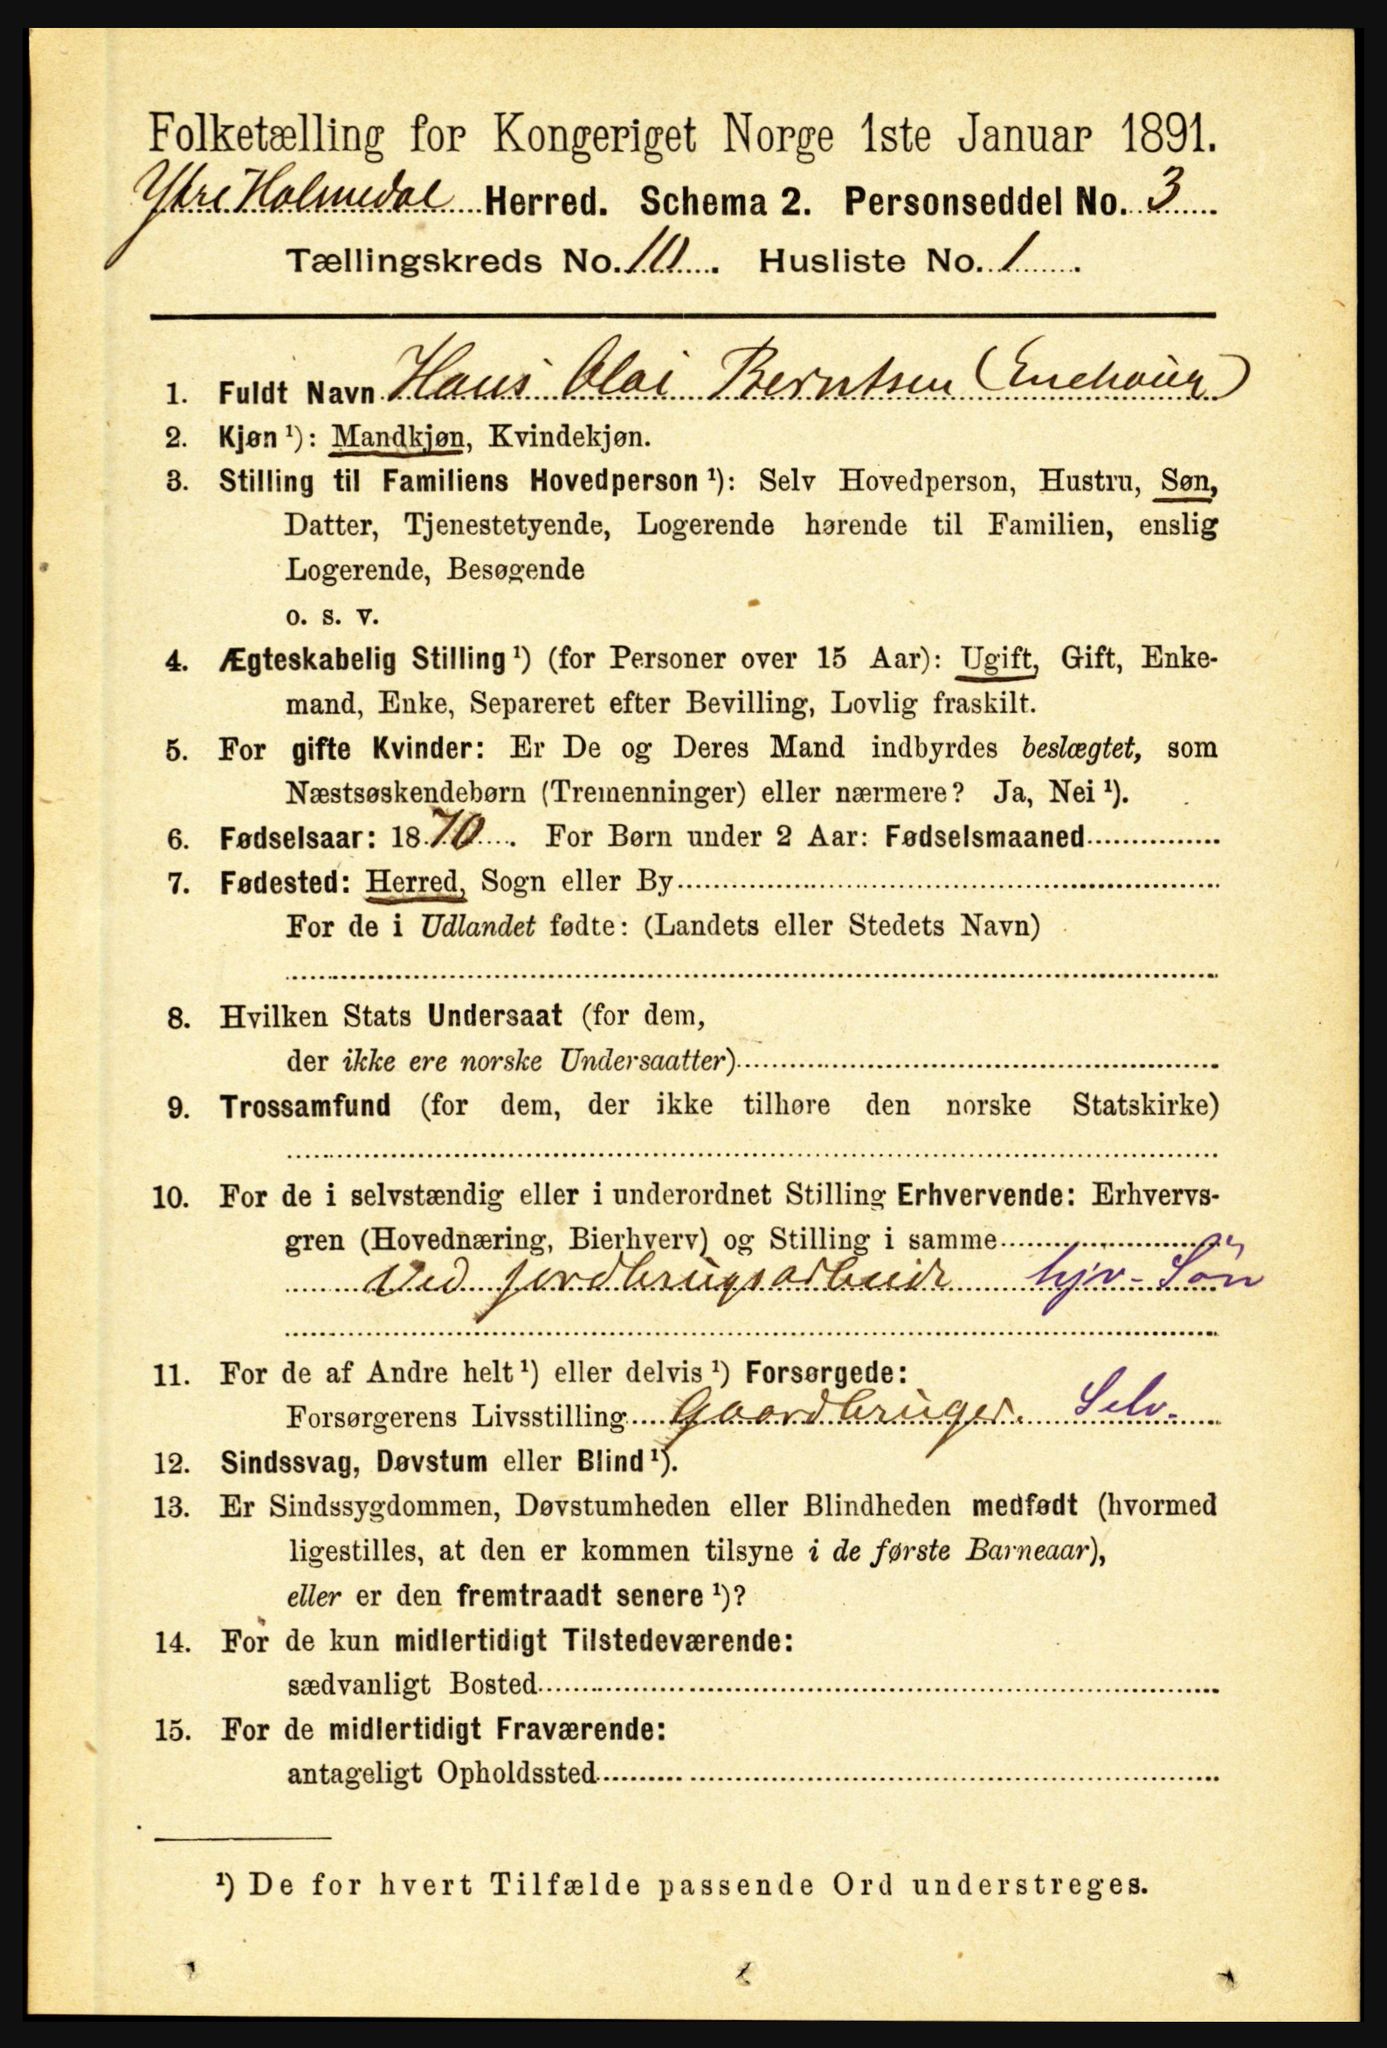 Folketælling for Kongeriget Norge 1ste Januar 1891.
Ytre Holmedal Herred. Schema 2. Personseddel No. 3
Tællingskreds No. 10. Husliste No. 1
1. Fuldt Navn Hans Olai Berntsen
2. Kjøn ¹): Mandkjøn, Kvindekjøn.
3. Stilling til Familiens Hovedperson ¹): Selv Hovedperson, Hustru, Søn,
Datter, Tjenestetyende, Logerende hørende til Familien, enslig
Logerende, Besøgende
o. s. v.
4. Ægteskabelig Stilling ¹) (for Personer over 15 Aar): Ugift, Gift, Enke-
mand, Enke, Separeret efter Bevilling, Lovlig fraskilt.
5. For gifte Kvinder: Er De og Deres Mand indbyrdes beslægtet, som
Næstsøskendebørn (Tremenninger) eller nærmere? Ja, Nei ¹).
6. Fødselsaar: 1870. For Børn under 2 Aar: Fødselsmaaned
7. Fødested: Herred, Sogn eller By
For de i Udlandet fødte: (Landets eller Stedets Navn)
8. Hvilken Stats Undersaat (for dem,
der ikke ere norske Undersaatter)
9. Trossamfund (for dem, der ikke tilhøre den norske Statskirke)
10. For de i selvstændig eller i underordnet Stilling Erhvervende: Erhvervs-
gren (Hovednæring, Bierhverv) og Stilling i samme
Ved jordbrugsarbeide hjv-Søn
11. For de af Andre helt ¹) eller delvis ¹) Forsørgede:
Forsørgerens Livsstilling Gaardbruger. Selv.
12. Sindssvag, Døvstum eller Blind ¹).
13. Er Sindssygdommen, Døvstumheden eller Blindheden medfødt (hvormed
ligestilles, at den er kommen tilsyne i de første Barneaar),
eller er den fremtraadt senere ¹)?
14. For de kun midlertidigt Tilstedeværende:
sædvanligt Bosted
15. For de midlertidigt Fraværende:
antageligt Opholdssted
¹) De for hvert Tilfælde passende Ord understreges.